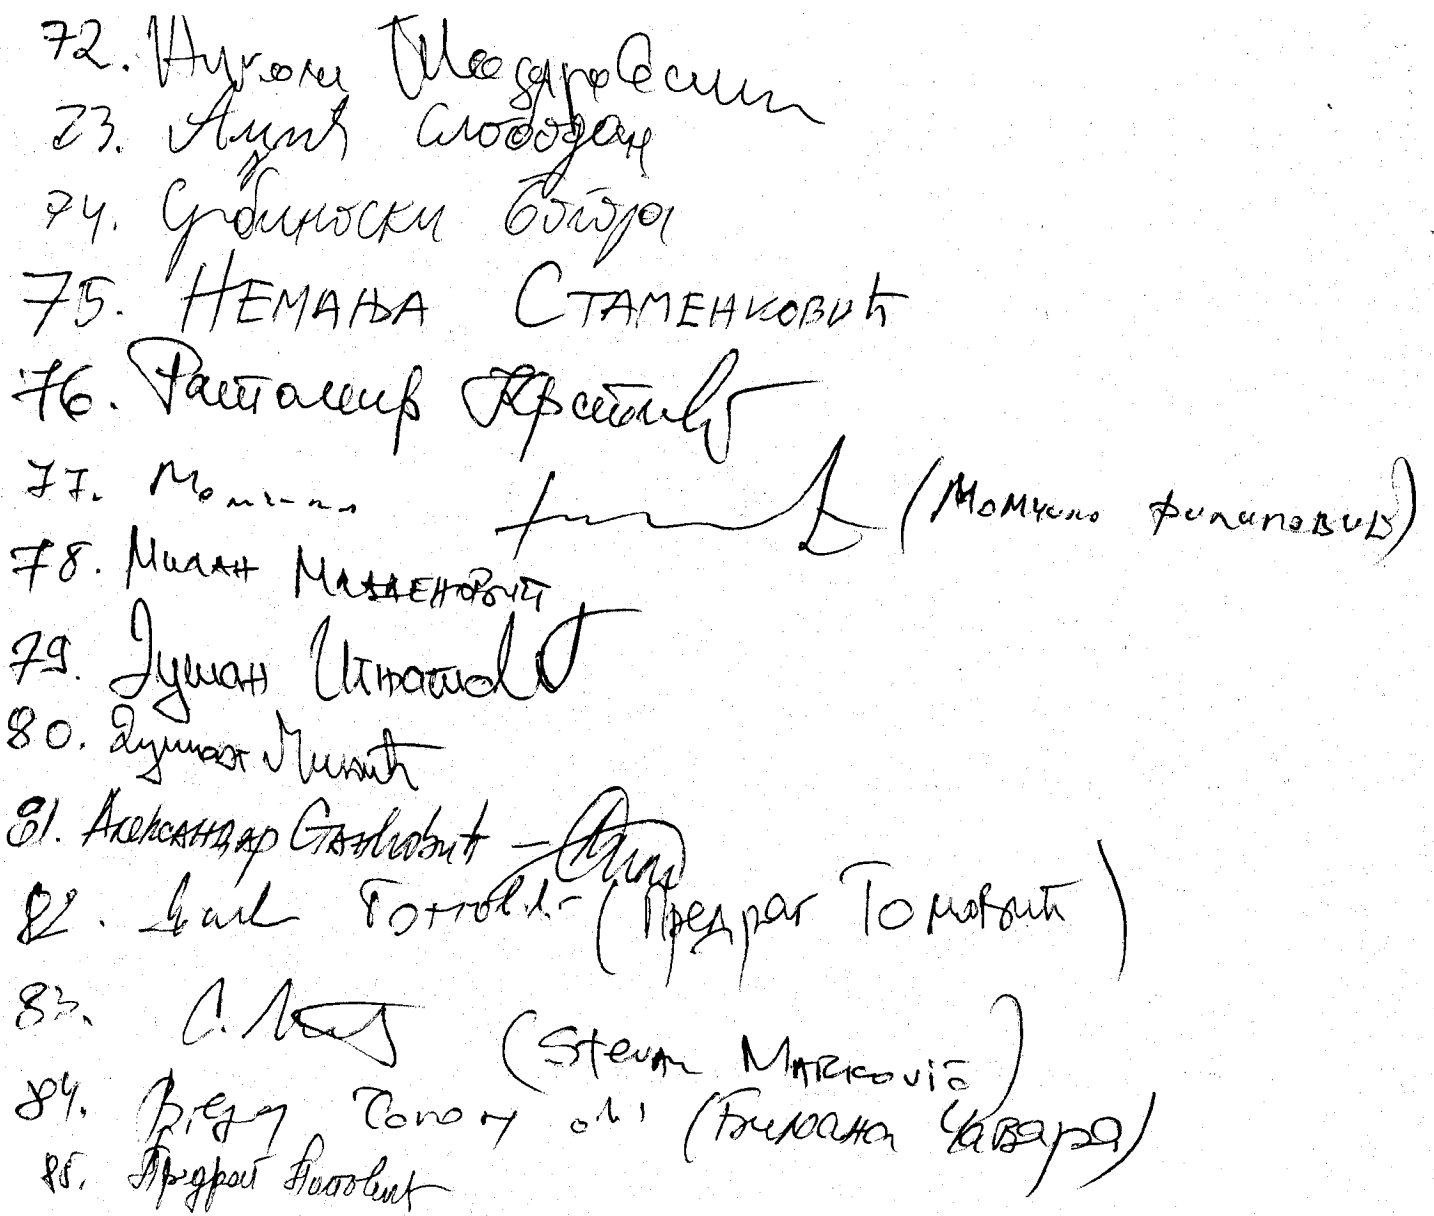 72. Никола Теодоровић
73. Алић Слободан
74. Србиноски
75. НЕМАЊА СТАМЕНКОВИЋ
76. Ратомир Крстић
77. Момчило (Момчило Филиповић)
78. Милан Млађеновић
79. Душан Игњатов
80. Душан Минић
81. Александар Станковић
82. (Предраг Томовић)
83. С. (Stevan Marković)
84. (Биљана Чавара)
85. Предраг Поповић